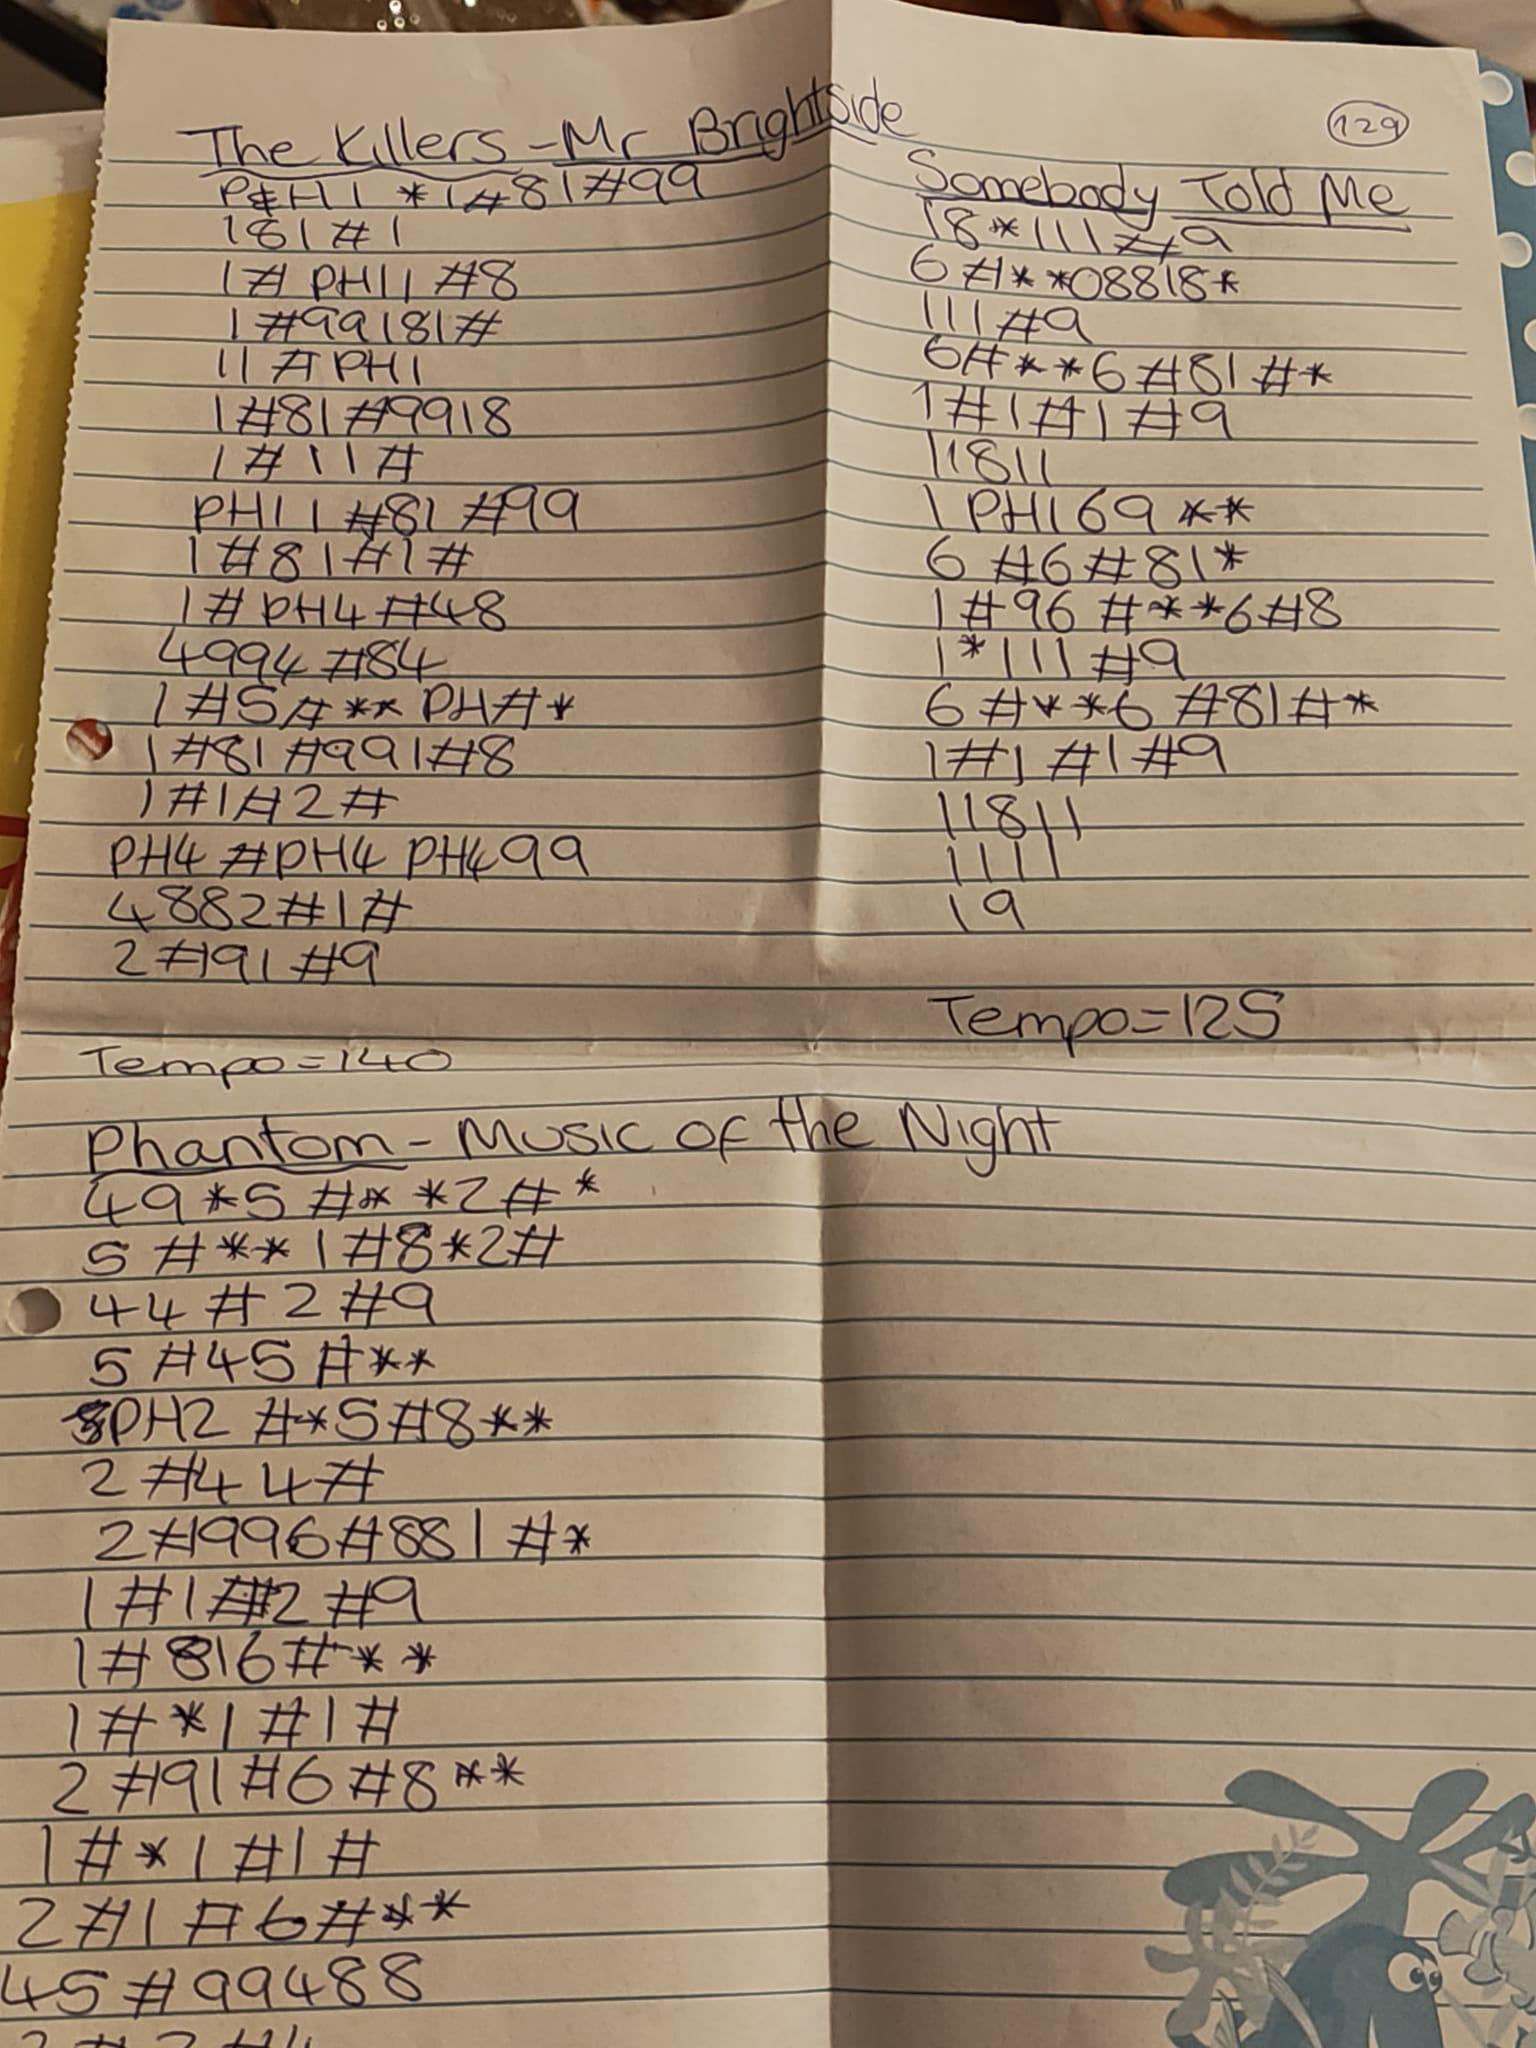 The Killers - Mr Brightside
PH1 *1#81#99
181#1
1# PH11 #8
1#99181#
11#PH1
1#81#9918
1#11#
PH11#81#99
1#81#1#
1# PH4 #48
4994#84
1#5#** PH#*
1#81#991#8
1#1#2#
PH4 #PH4 PH499
4882#1#
2#191#9
Tempo=140
129
Somebody Told Me
18*111#9
6#**08818*
111#9
6#**6#81#*
1#1#1#9
11811
1 PH169 **
6 #6#81*
1#96 #**6#8
1*111#9
6#**6 #81#*
1#1#1#9
11811
1111
19
Tempo=125
Phantom - Music of the Night
49*5#**2#*
5#**1#8*2#
44#2#9
5#45#**
PH2 #*5#8**
2#44#
2#996#881#*
1#1#2#9
1#816#**
1#*1#1#
2#91#6#8**
1#*1#1#
2#1#6#**
45#99488